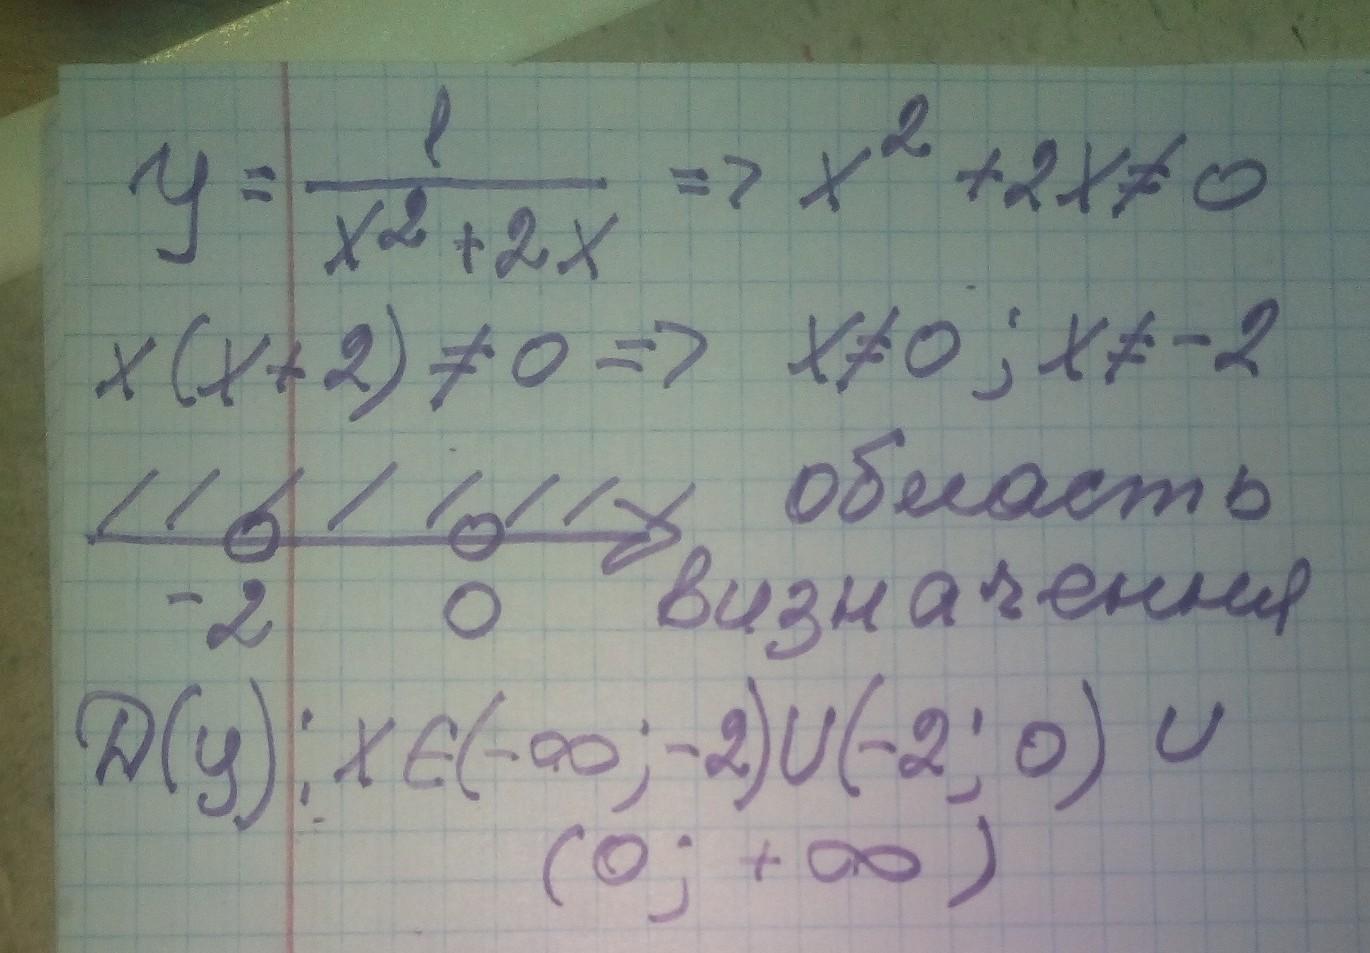 y = 1/(x² + 2x) => x² + 2x ≠ 0
x(x+2) ≠ 0 => x ≠ 0 ; x ≠ -2
область
-2 0 визначення
D(y): x ∈ (-∞; -2) ∪ (-2; 0) ∪
(0; +∞)